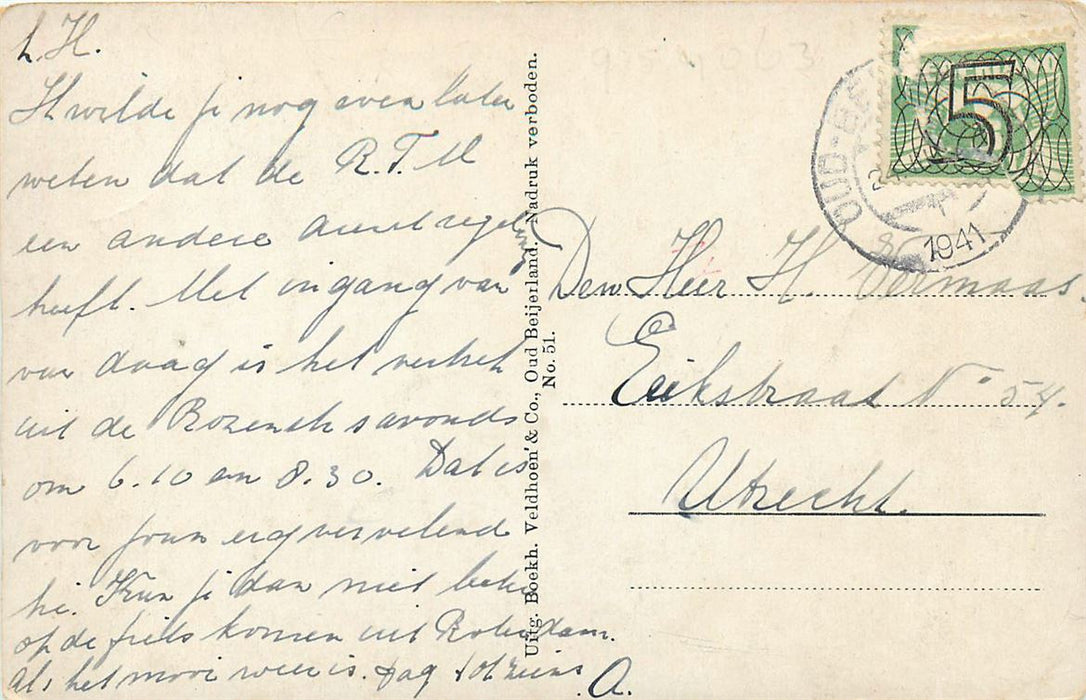 L. H.
Ik wilde je nog even laten
weten dat de R.T.M
een andere dienstregeling
heeft. Met ingang van
van daag is het vertrek
uit de Rozenstr s'avonds
om 6.10 en 8.30. Dat is
voor jouw erg vervelend
hè. Kun je dan niet beter
op de fiets komen uit Rotterdam.
als het mooi weer is. dag tot ziens
A.
Uitg. Boekh. Veldhoen' & Co., Oud Beijerland. Nadruk verboden.
No. 51.
5
OUD-BE
1941
Den Heer H. Vermaas.
Eikstraat No 54.
Utrecht.